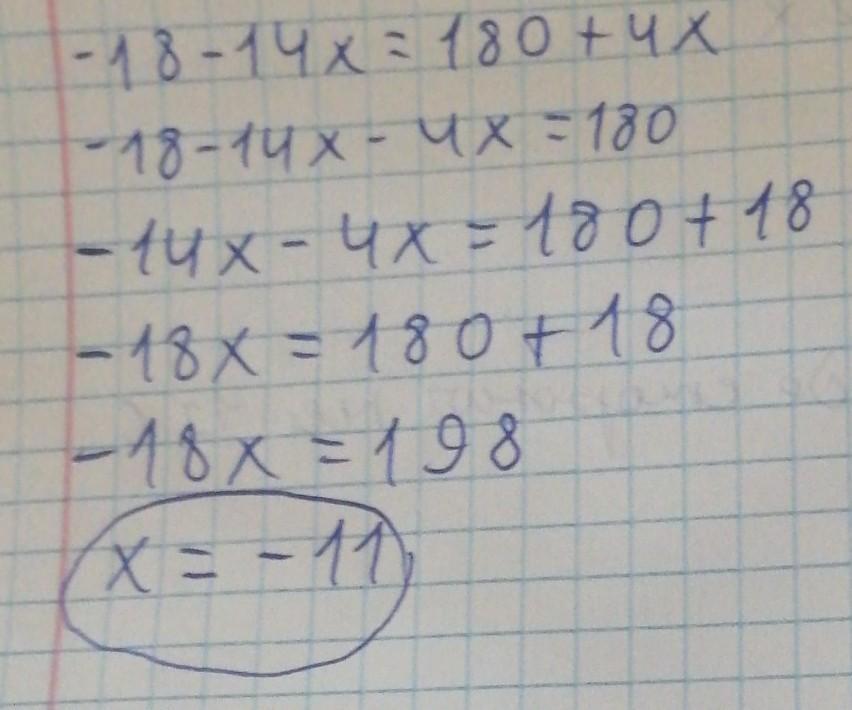 -18-14x=180+4x
-18-14x-4x=180
-14x-4x=180+18
-18x=180+18
-18x=198
x=-11